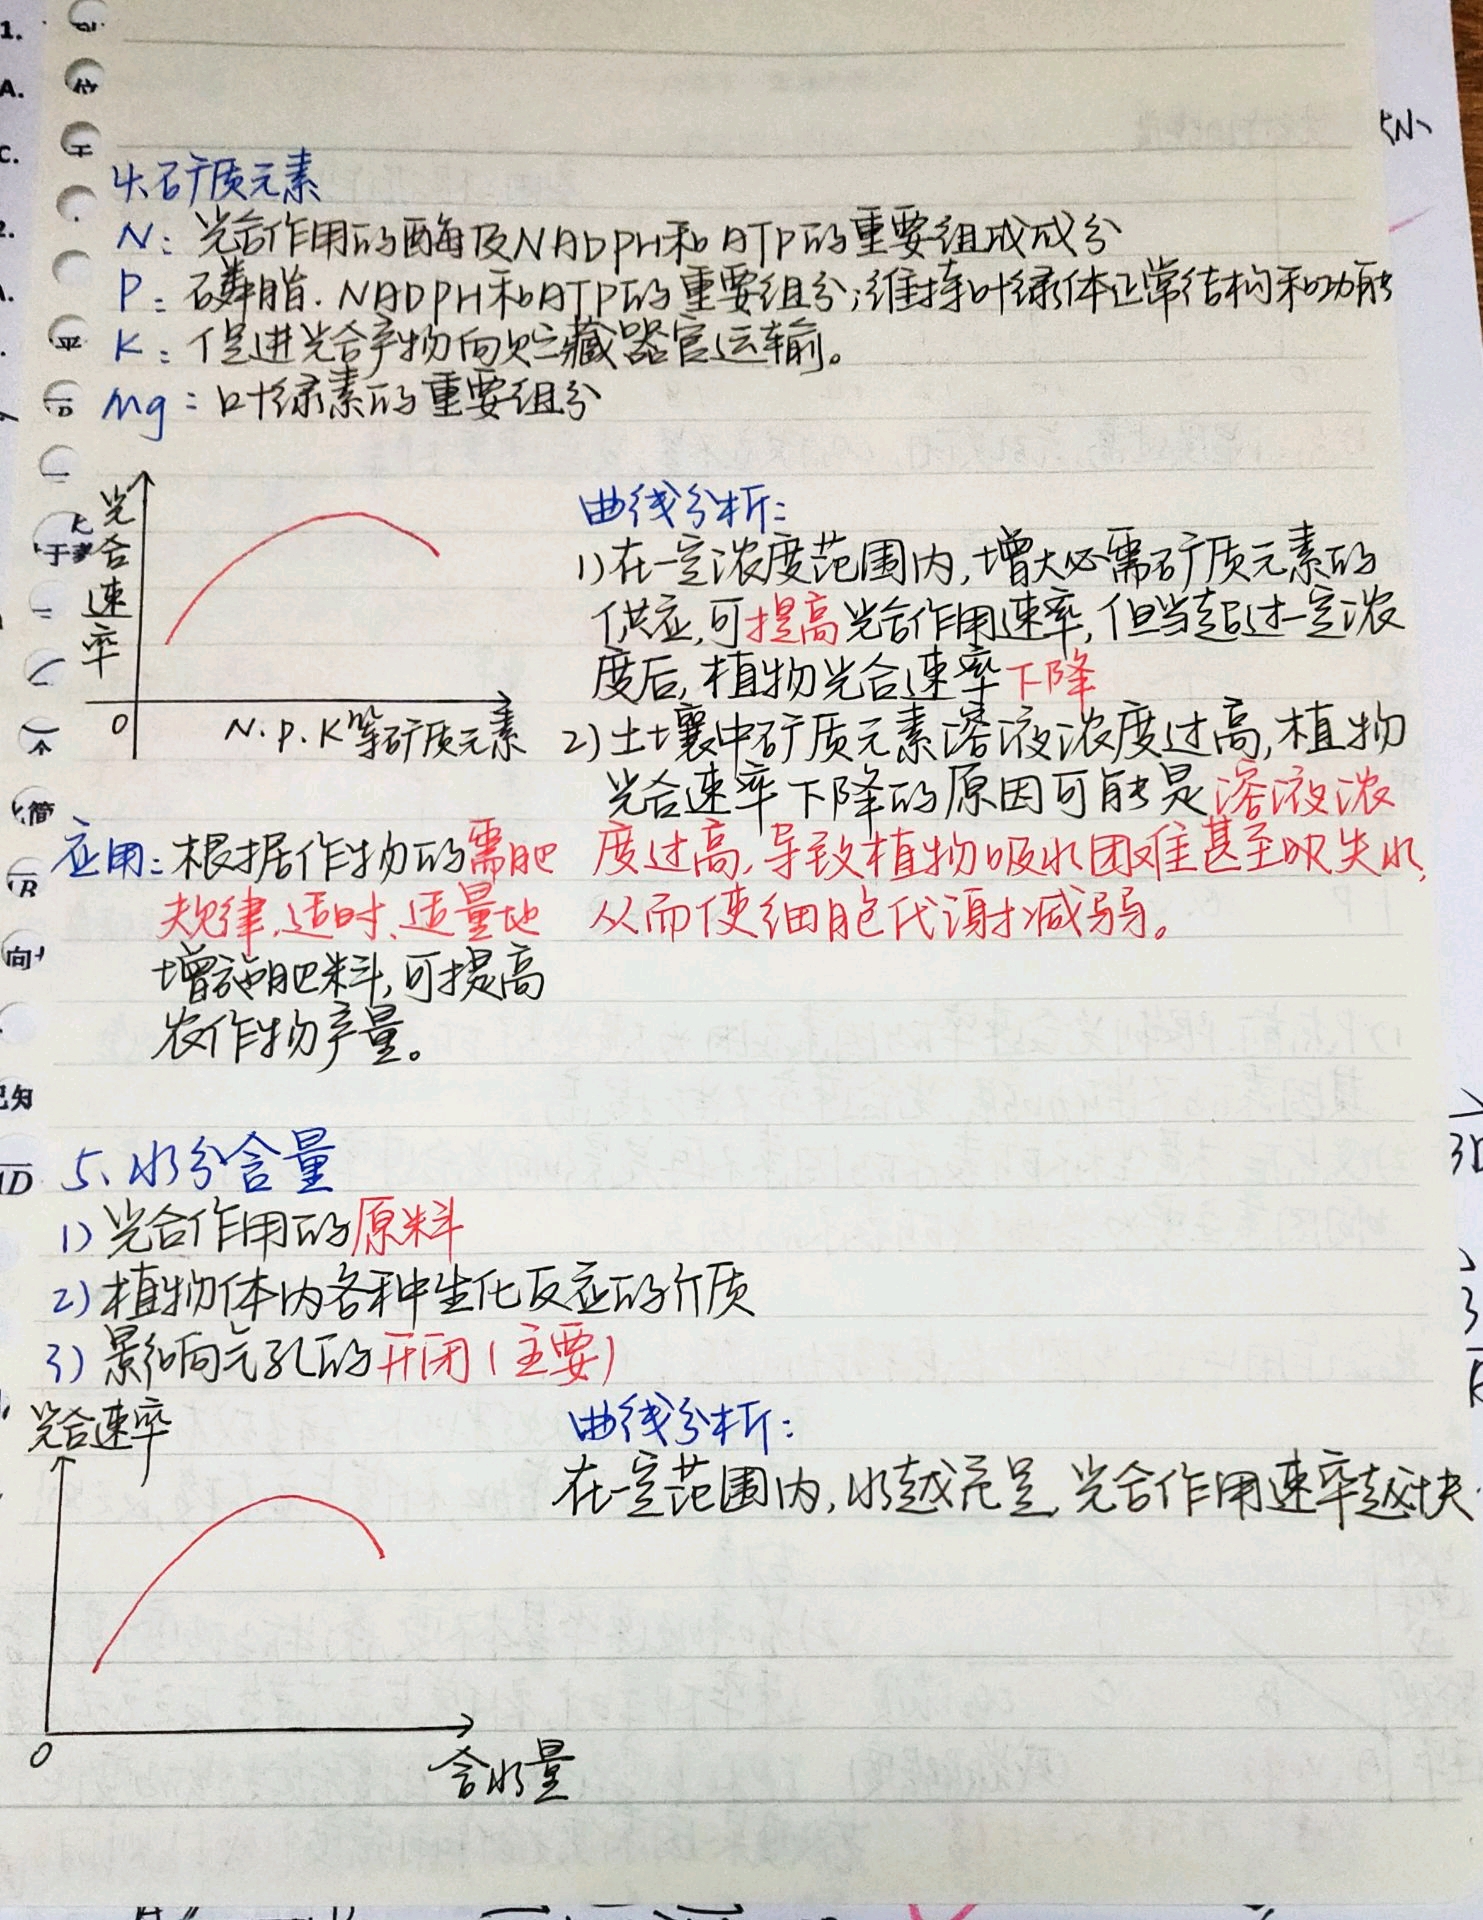 4、矿质元素
N：光合作用的酶及NADPH和ATP的重要组成成分
P：磷脂、NADPH和ATP的重要组分；维持叶绿体正常结构和功能
K：促进光合产物向贮藏器官运输。
Mg：叶绿素的重要组分
光合速率
0
N、P、K等矿质元素
曲线分析：
1)在一定浓度范围内，增大必需矿质元素的
供应，可提高光合作用速率，但当超过一定浓
度后，植物光合速率下降
2)土壤中矿质元素溶液浓度过高，植物
光合速率下降的原因可能是溶液浓
度过高，导致植物吸水困难甚至失水，
从而使细胞代谢减弱。
应用：根据作物的需肥
规律，适时、适量地
增施肥料，可提高
农作物产量。
5、水分含量
1)光合作用的原料
2)植物体内各种生化反应的介质
3)影响气孔的开闭(主要)
光合速率
0
含水量
曲线分析：
在一定范围内，水越充足，光合作用速率越快.
1.
A.
C.
2.
位
于
平
个
简
向
已知